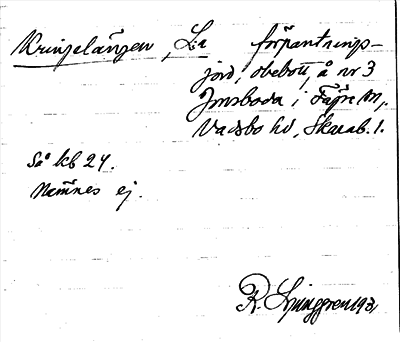 Kringelängen, La förpantnings-
jord, obebott, å nr 3
Jonsboda i Fägre sn,
Vadsbo hd, Skarab. l.
Så kb 24.
Nämnes ej.
R. Ljunggren 193